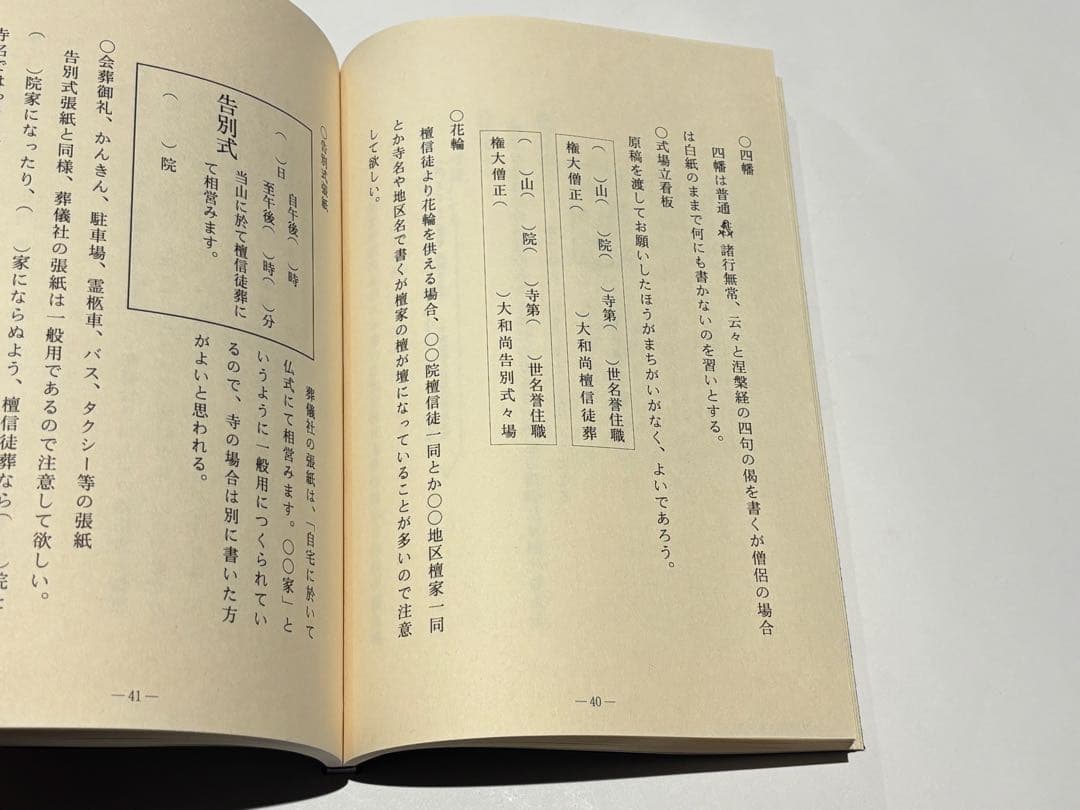 ○四幡
四幡は普通 諸行無常、云々と涅槃経の四句の偈を書くが僧侶の場合
は白紙のままで何にも書かないのを習いとする。
○式場立看板
原稿を渡してお願いしたほうがまちがいがなく、よいであろう。
( )山( )院( )寺第( )世名誉住職
権大僧正( )大和尚檀信徒葬
( )山( )院( )寺第( )世名誉住職
権大僧正( )大和尚告別式々場
○花輪
檀信徒より花輪を供える場合、〇〇院檀信徒一同とか〇〇地区檀家一同
とか寺名や地区名で書くが檀家の檀が壇になっていることが多いので注意
して欲しい。
—40—
○告別式張紙
告別式
( )日
自午後( )時
至午後( )時( )分
当山に於て檀信徒葬に
て相営みます。
( )院
葬儀社の張紙は、「自宅に於いて
仏式にて相営みます。〇〇家」と
いうように一般用につくられてい
るので、寺の場合は別に書いた方
がよいと思われる。
○会葬御礼、かんきん、駐車場、霊柩車、バス、タクシー等の張紙
告別式張紙と同様、葬儀社の張紙は一般用であるので注意して欲しい。
( )院家になったり、( )家にならぬよう、檀信徒葬なら( )院と
—41—